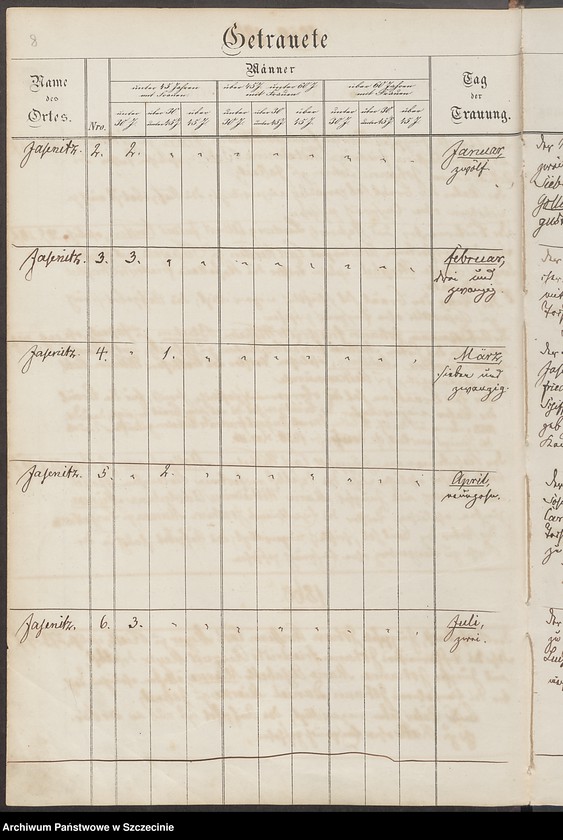 8
Getrauete
Name des Ortes.
Nro.
Männer
unter 45 Jahren mit Frauen
über 45 J. unter 60 J. mit Frauen
über 60 Jahren mit Frauen
unter 30 J.
über 30 unter 45 J.
über 45 J.
unter 30 J.
über 30 unter 45 J.
über 45 J.
unter 30 J.
über 30 unter 45 J.
über 45 J.
Tag der Trauung.
Jasenitz. 2. 2. Januar,
zwölf.
Jasenitz. 3. 3. Februar,
drei und
zwanzig.
Jasenitz. 4. 1. März,
sieben und
zwanzig.
Jasenitz. 5. 2. April,
neunzehn.
Jasenitz. 6. 3. Juli,
zwei.
Archiwum Państwowe w Szczecinie